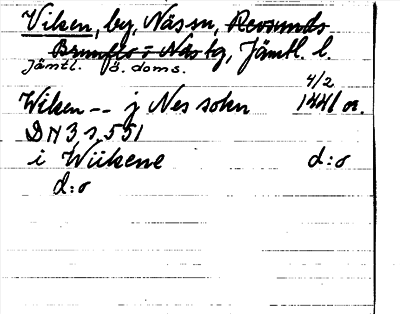 Viken, by, Näs sn, Revsunds
Brunflo o Näs tg, Jämtl. l.
Jämtl. ö. doms.
4/2
Wiken -- j Nes sokn 1441 or.
DN 3, s. 551
i Wiikene d:o
d:o